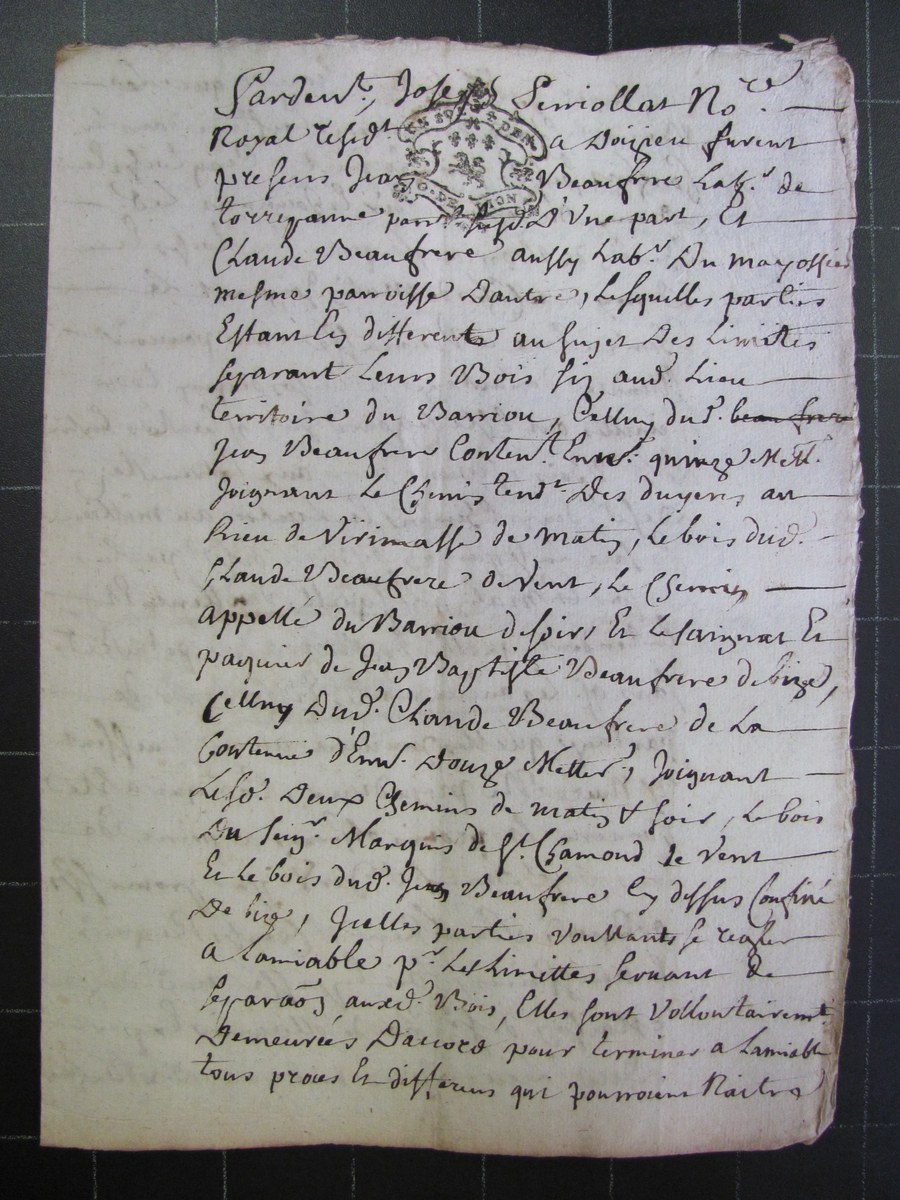 Pardev.t, Joseph Perriollat No.re
Royal resid.t a Doizieu furent
GEN DE LION
presens Jean Beaufrere Lab.r de
D'Une part, Et
Claude Beaufrere aussy Lab.r Du
mesme parroisse Dautre, Lesquelles parties
Estant En differents au sujet Des Limittes
separant Leurs Bois siz aud. Lieu
territoire du Barriou, Celluy dud. beaufrere
Jean Beaufrere Conten.t Env.n quinze Mett.
Joignant Le Chemin tend.t Des au
Rieu de Virimasse de matin, Le bois dud.
Claude Beaufrere de Vent, Le Chemin
appellé du Barriou de soir, Et Le saignat Et
paquier de Jean Baptiste Beaufrere de bize,
Celluy Dud. Claude Beaufrere de La
Contenue d'Env.n Douze Metter.s, Joignant
Lesd. Deux Chemins de matin & soir, Le bois
Du seig.r Marquis de S.t Chamond de Vent
Et Le bois dud. Jean Beaufrere Cy dessus Confiné
De bize, Icelles parties Voullants se regler
a Lamiable p.r Les Limittes servant de
separaõn auxd. Bois, Elles sont Vollontairem.t
Demeurées Daccord pour terminer a Lamiable
tous proces Et differens qui pourroient Naitre